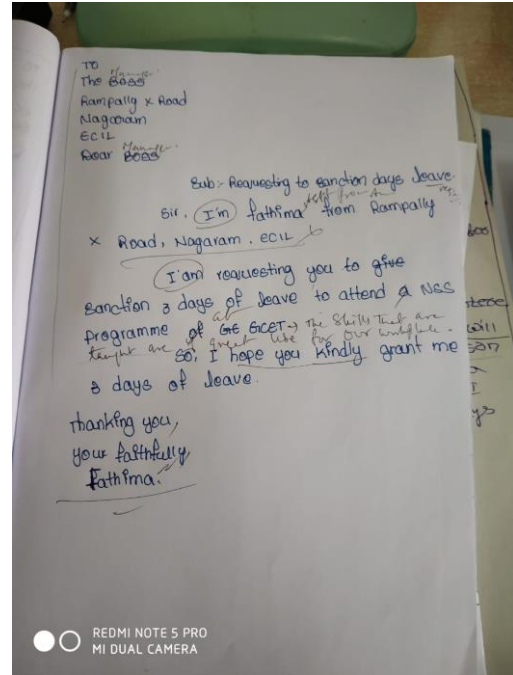 TO
Manager
The BOSS
Rampally x Road
Nagaram
ECIL
Manager
Dear BOSS
Sub:- Requesting to sanction days leave.
Sir, I'm fathima from Rampally
x Road, Nagaram. ECIL
I am requesting you to give
sanction 3 days of leave to attend a NSS
at
programme of GE GCET → The Skills that are
taught are of great use for our workplace.
So, I hope you kindly grant me
3 days of leave.
Thanking you,
your faithfully
Fathima.
will
REDMI NOTE 5 PRO
MI DUAL CAMERA